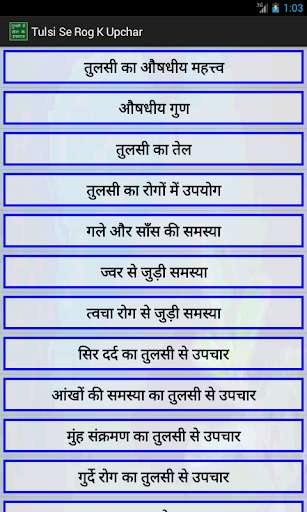 1:03
Tulsi Se Rog K Upchar
तुलसी का औषधीय महत्त्व
औषधीय गुण
तुलसी का तेल
तुलसी का रोगों में उपयोग
गले और साँस की समस्या
ज्वर से जुड़ी समस्या
त्वचा रोग से जुड़ी समस्या
सिर दर्द का तुलसी से उपचार
आंखों की समस्या का तुलसी से उपचार
मुंह संक्रमण का तुलसी से उपचार
गुर्दे रोग का तुलसी से उपचार